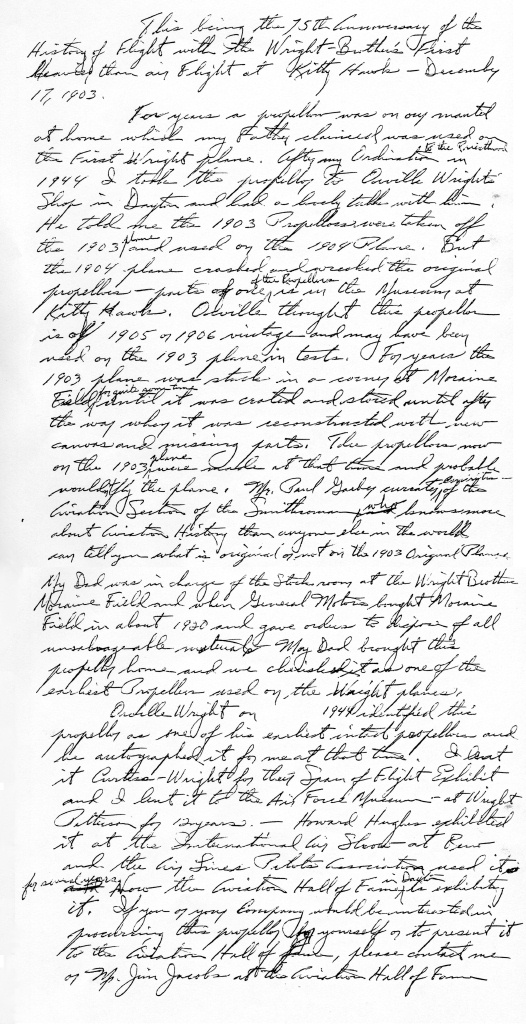 This being the 75th Anniversary of the
History of Flight with the Wright Brother's First
Heavier than air Flight at Kitty Hawk - December
17, 1903.
For years a propeller was on our mantel
at home which my Father claimed was used on
the First Wright plane. After my Ordination to the Priesthood in
1944 I took the propeller to Orville Wright's
Shop in Dayton and had a lovely talk with him.
He told me the 1903 Propellers were taken off
the 1903 plane and used on the 1904 Plane. But
the 1904 plane crashed and wrecked the original
propellers - parts of one of the Propellers is in the Museum at
Kitty Hawk. Orville thought this propeller
is of 1905 or 1906 vintage and may have been
used on the 1903 plane in tests. For years the
1903 plane was stuck in a corner at Moraine
Field for quite some time until it was crated and stored until after
the war when it was reconstructed with new
canvas and missing parts. The propellers now
on the 1903 plane were made at that time and probable
wouldn't fly the plane. Mr. Paul Garber curator of the
Aviation Section of the Smithsonian who knows more
about Aviation History than anyone else in the world
can tell you what is original or not on the 1903 Original Plane.
My Dad was in charge of the Stock room at the Wright Brother
Moraine Field and when General Motors bought Moraine
Field in about 1920 and gave orders to dispose of all
unsalvageable materials May Dad brought this
propeller home and we cherished it as one of the
earliest Propellers used on the Wright planes.
Orville Wright on 1944 identified this
propeller as one of his earliest intact propellers and
he autographed it for me at that time. I lent
it Curtiss-Wright for their Span of Flight Exhibit
and I lent it to the Air Force Museum - at Wright
Patterson for 12 years. - Howard Hughes exhibited
it at the International Air Show - at Reno
and the Air Lines Pilots Association used it
for several years Now the Aviation Hall of Fame in Dayton is exhibiting
it. If you or your Company would be interested in
procuring this propeller for yourself or to present it
to the Aviation Hall of Fame, please contact me
or Mr. Jim Jacobs at the Aviation Hall of Fame